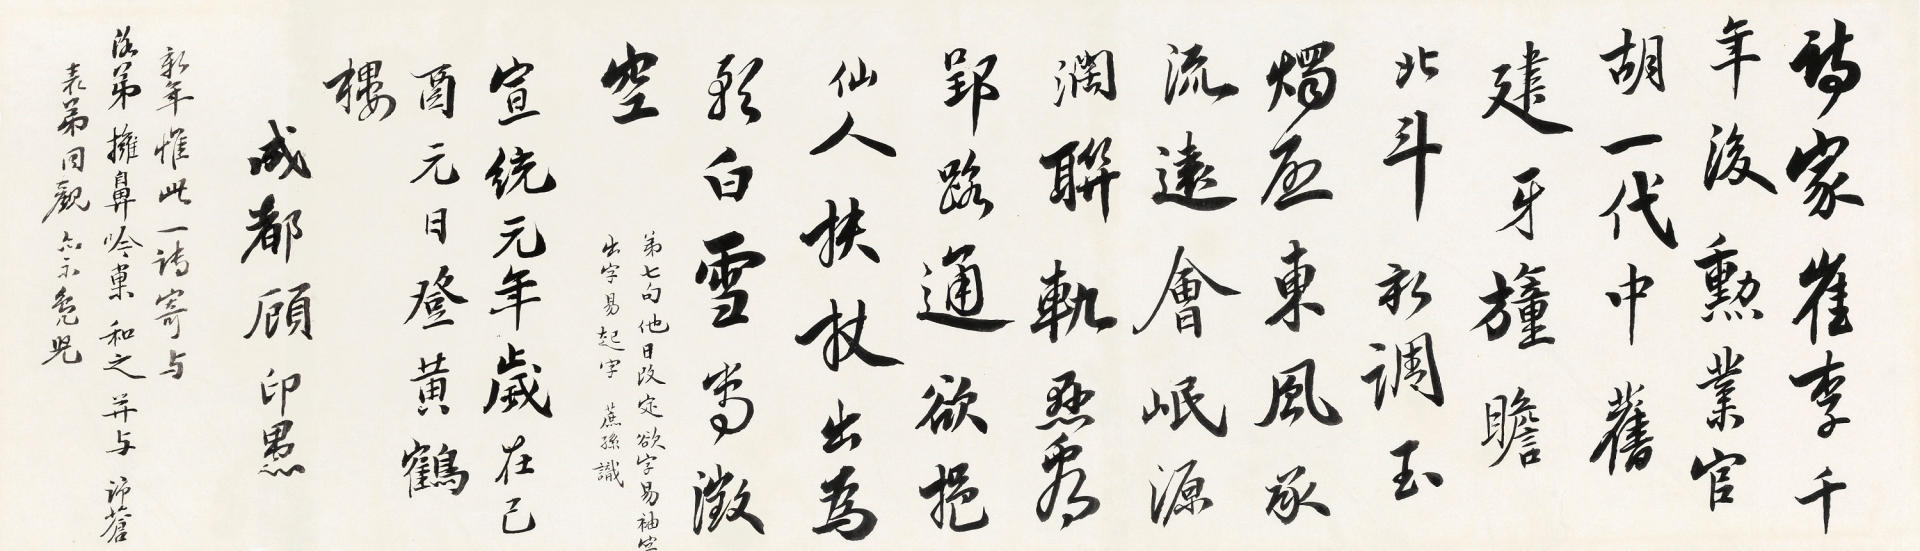 詩家崔李千
年後勳業官
胡一代中舊
建牙幢瞻
北斗新調玉
燭應東風承
流遠會岷源
濶聯軌為
郢路通欲挹
仙人扶杖出為
歌白雪當澂
空
弟七句他日改定欲字易袖字
出字易起字 蔗孫識
宣統元年歲在己
酉元日登黃鶴
樓
成都顧印愚
新年惟此一詩寄与
洛弟擁鼻吟藁和之并与蒼
表弟同觀亦示兒